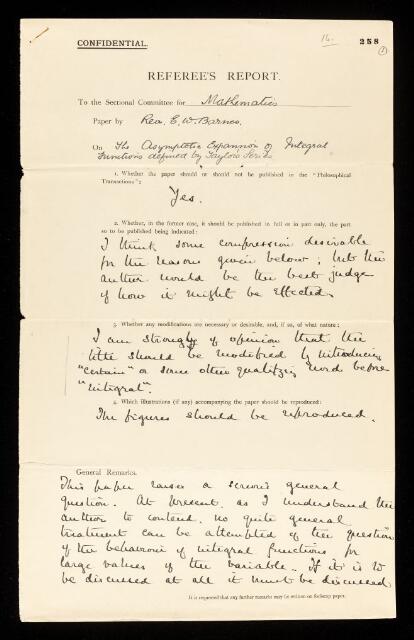 CONFIDENTIAL.
14.
258
REFEREE'S REPORT.
To the Sectional Committee for Mathematics
Paper by Rev. E. W. Barnes.
On The Asymptotic Expansion of Integral
Functions defined by Taylor's Series
1. Whether the paper should or should not be published in the "Philosophical
Transactions":
Yes.
2. Whether, in the former case, it should be published in full or in part only, the part
so to be published being indicated:
I think some compression desirable
for the reasons given below; but the
author would be the best judge
of how it might be effected.
3. Whether any modifications are necessary or desirable, and, if so, of what nature:
I am strongly of opinion that the
title should be modified by introducing
"certain" or some other qualifying word before
"integral".
4. Which illustrations (if any) accompanying the paper should be reproduced:
The figures should be reproduced.
General Remarks.
This paper raises a serious general
question. At present, as I understand the
author to contend, no quite general
treatment can be attempted of the question
of the behaviour of integral functions for
large values of the variable. If it is to
be discussed at all it must be discussed
It is requested that any further remarks may be written on foolscap paper.